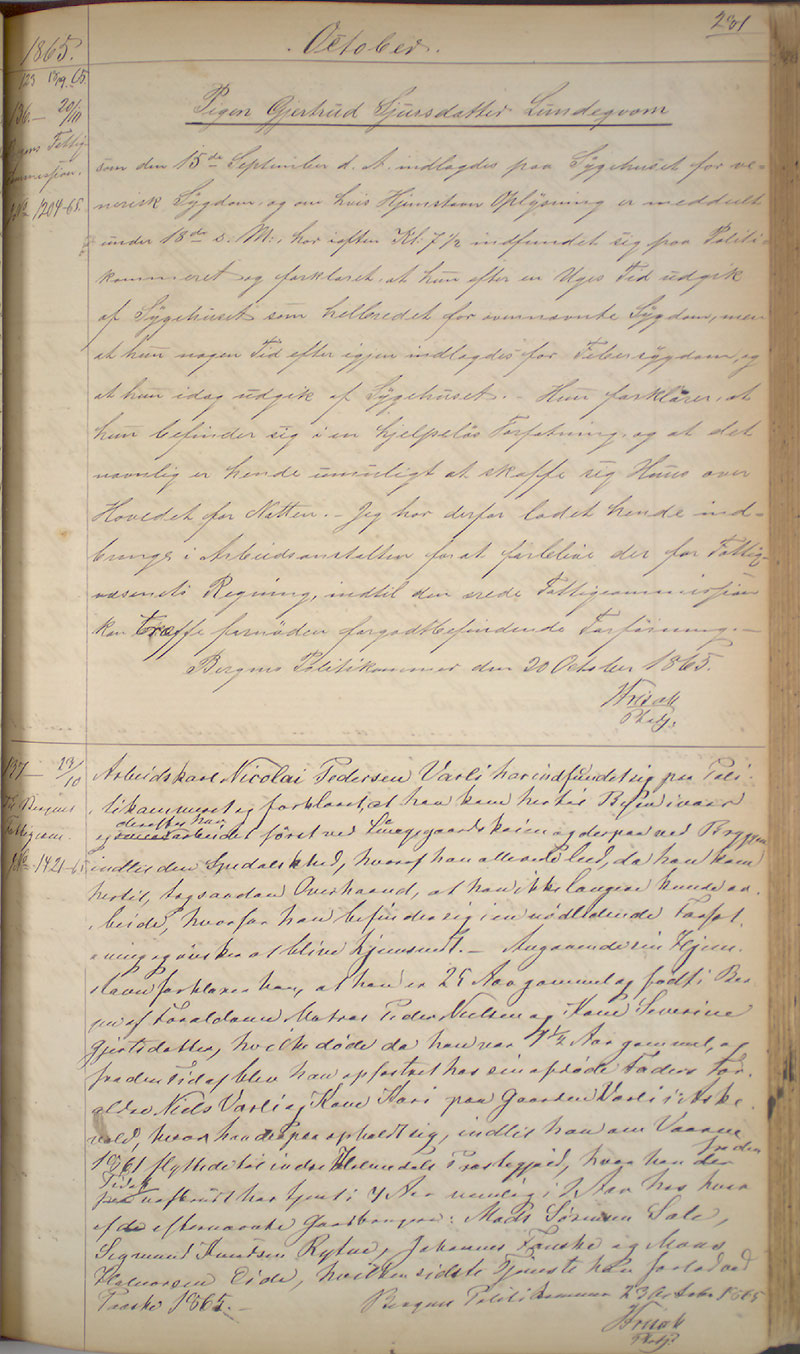 231
1865.
October.
123 18/9 65.
136.— 20/10
Bergens Fattig
commission.
J.No 1204-65.
Pigen Gjertrud Sjursdatter Lundeqvam
som den 15de September d. A. indlagdes paa Sygehuset for ve-
nerisk Sygdom, og om hvis Hjemstavn Oplysning er meddeelt
under 18de s. M., har iaften Kl. 7½ indfundet sig paa Politi-
kammeret og forklaret, at hun efter en Uges Tid udgik
af Sygehuset som helbredet for ovennævnte Sygdom, men
at hun nogen Tid efter igjen indlagdes for Febersygdom, og
at hun idag udgik af Sygehuset. – Hun forklarer, at
hun befinder sig i en hjelpeløs Forfatning, og at det
navnlig er hende umuligt at skaffe sig Huus over
Hovedet for Natten. – Jeg har derfor ladet hende ind-
bringe i Arbeidsanstalten for at forblive der for Fattig-
væsenets Regning, indtil den ærede Fattigcommission
kan træffe fornøden forgodtbefindende Forføining. —
Bergens Politikammer den 20 October 1865.
137— 23/10
Bergens
Fattigcom.
J.No 1421-65
Arbeidskarl Nicolai Pedersen Varli har indfundet sig paa Poli-
tikammeret og forklaret, at han kom hertil Byen ivaar
og derefter har arbeidet først ved Sværgaardskaien og derpaa ved Bryggen
indtil den Spedalskhed, hvoraf han allerede leed, da han kom
hertil, tog saadan Overhaand, at han ikke længere kunde ar-
beide, hvorfor han befinder sig i en nødlidende Forfat-
ning og ønsker at blive hjemsendt. – Angaaende sin Hjem-
stavn forklarer han, at han er 25 Aar gammel og født i Ber-
gen af Forældrene Matros Peder Nielsen og Kone Severine
Gjertsdatter, hvilke døde da han var 1½ Aar gammel, og
fra den Tid af blev han opfostret hos sin afdøde Faders For-
ældre Niels Varli og Kone Kari paa Gaarden Varli i Aske-
vold, hvor han derpaa opholdt sig, indtil han om Vaaren
1861 flyttede til indre Holmedals Præstegjeld, hvor han fra den
Tid uafbrudt har tjent i 4 Aar nemlig i 1 Aar hos hver
af de efternævnte Gaardbrugere: Mads Sørensen Sale,
Sigmund Knudsen Rytne, Johannes Fauske og Mons
Halvorsen Eide, hvilken sidste Tjeneste han forlod ved
Paaske 1865. –
Bergens Politikammer 23 October 1865